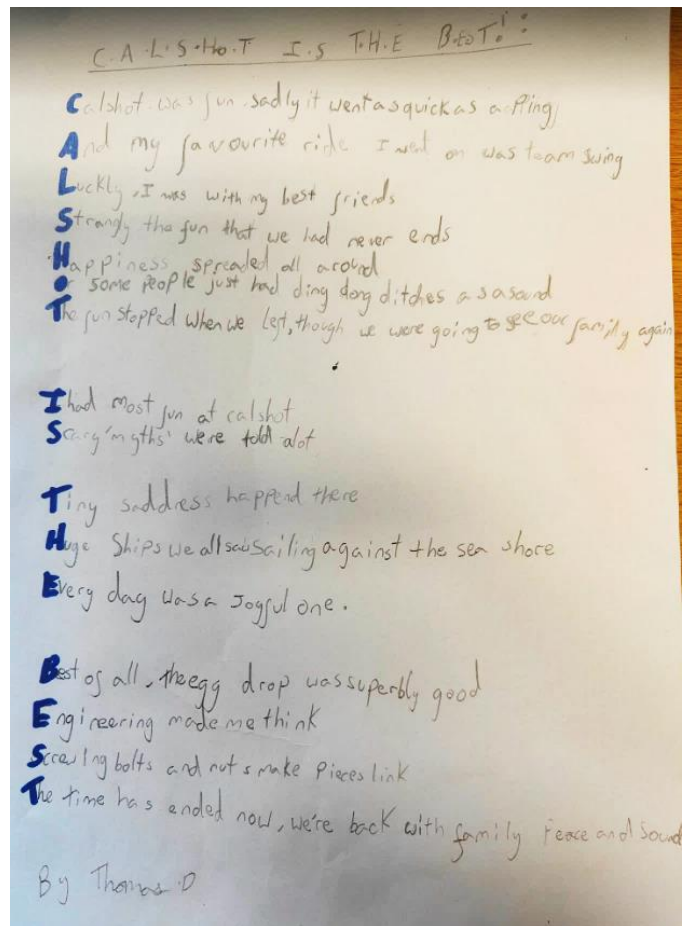 C.A.L.S.Ho.T I.S T.H.E B.es.T!:
Calshot was fun. sadly it went as quick as a Ping
And my favourite ride I went on was team swing
Luckly, I was with my best friends
Strangly the fun that we had never ends
Happiness spreaded all around
Or some People just had ding dong ditches as a sound
The fun stopped when we left, though we were going to see our family again
I had most fun at calshot
Scary 'myths' were told alot
Tiny saddness happend there
Huge Ships we all saw sailing against the sea shore
Every day was a Joyful one.
Best of all, the egg drop was superbly good
Engineering made me think
Screwing bolts and nuts make Pieces link
The time has ended now, we're back with family Peace and Sound
By Thomas D